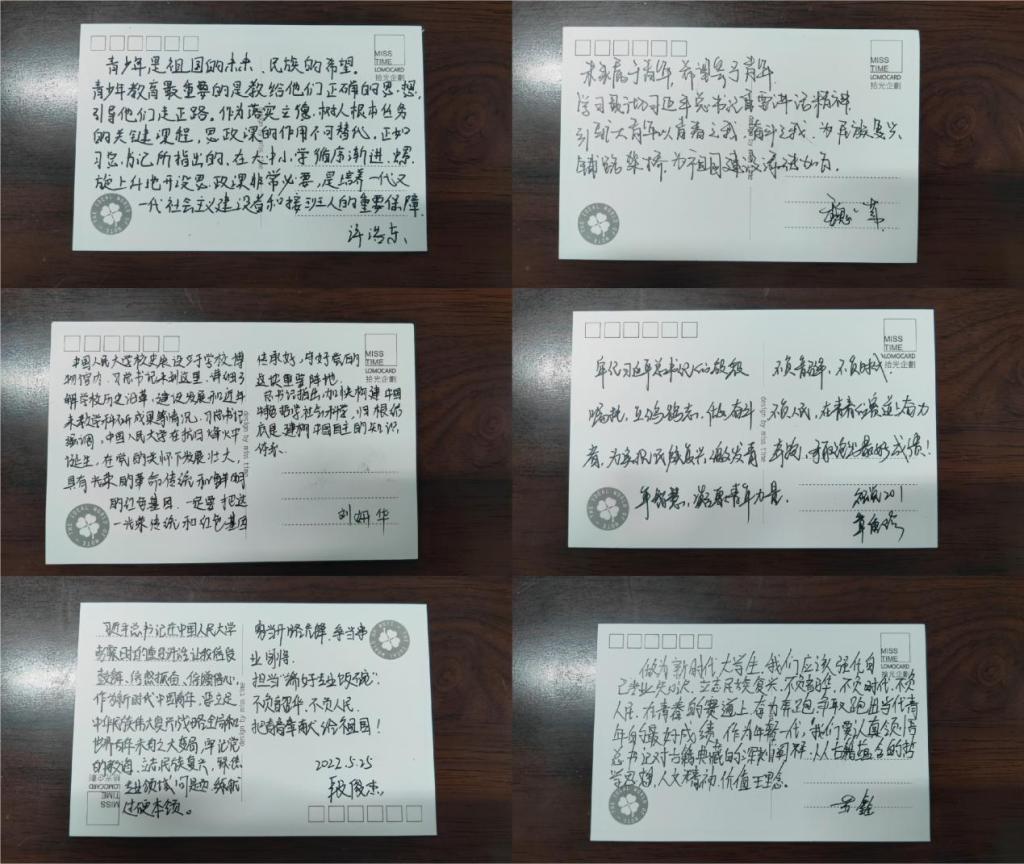 MISS
TIME
LOMOCARD
拾光企劃
青少年是祖国的未来、民族的希望。
青少年教育最重要的是教给他们正确的思想,
引导他们走正路。作为落实立德树人根本任务
的关键课程,思政课的作用不可替代。正如
习总书记所指出的,在大中小学循序渐进、螺
旋上升地开设思政课非常必要,是培养一代又
一代社会主义建设者和接班人的重要保障。
许浩东
MISS
TIME
LOMOCARD
拾光企劃
未来属于青年,希望寄予青年
学习践行习近平总书记重要讲话精神
引领大青年以青春之我,奋斗之我,为民族复兴
铺路架桥,为祖国建设添砖加瓦。
MISS
TIME
LOMOCARD
拾光企劃
中国人民大学校史展设于学校博
物馆内,习总书记来到这里,详细了
解学校历史沿革、建设发展和近年
来教学科研成果等情况。习总书记
强调,中国人民大学在抗日烽火中
诞生,在党的关怀下发展壮大,
具有光荣的革命传统和鲜明
的红色基因。一定要把这
一光荣传统和红色基因
传承好,守好党的
这块重要阵地。
总书记指出,加快构建中国
特色哲学社会科学,归根结
底是建构中国自主的知识
体系。
design by miss time
刘妍华
MISS
TIME
LOMOCARD
拾光企劃
牢记习近平总书记的殷殷
嘱托,立鸿鹄志,做奋斗
者,为实现民族复兴,激发青
年智慧,凝聚青年力量。
不负韶华,不负时代,
不负人民,在青春的赛道上奋力
奔跑,争取跑出最好成绩!
design by miss time
习近平总书记在中国人民大学
考察时的重要讲话让我倍受
鼓舞、倍感振奋、倍添信心,
作为新时代中国青年,要立足
中华民族伟大复兴战略全局和
世界百年未有之大变局,牢记党
的教诲,立志民族复兴,聚焦
专业领域问题,练就
过硬本领。
勇当开路先锋、争当事
业闯将。
担当“编好专业饭碗”
不负韶华、不负人民,
把青春奉献给祖国!
2022.5.25
段俊杰
MISS
TIME
LOMOCARD
拾光企劃
MISS
TIME
LOMOCARD
拾光企劃
做为新时代大学生,我们应该强化自
己专业知识,立志民族复兴,不负韶华,不负时代,不负
人民,在青春的赛道上奋力奔跑,争取跑出当代青
年的最好成绩。作为年轻一代,我们要认真领悟
总书记对古籍典藏的深刻阐释,从古籍蕴含的哲
学思想、人文精神、价值理念